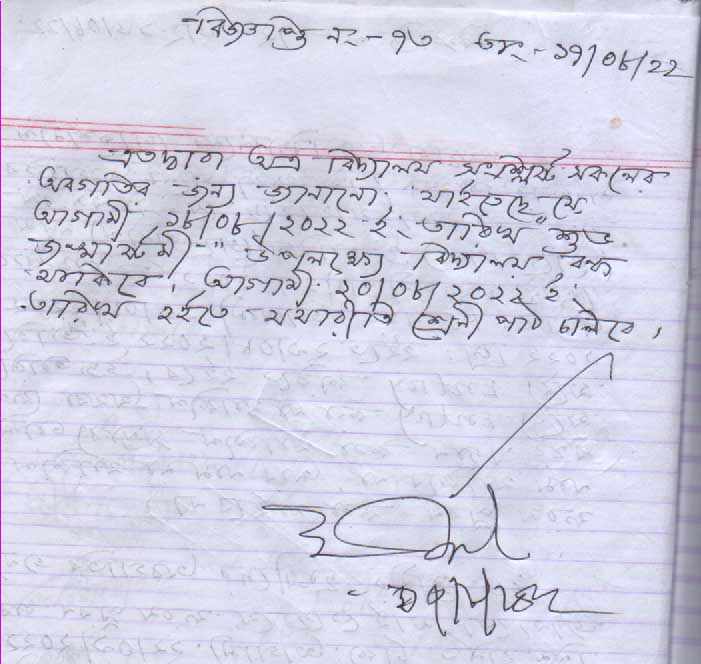 বিজ্ঞপ্তি নং - ৭৩ তাং - ১৭/০৮/২২
এতদ্বারা অত্র বিদ্যালয় সংশ্লিষ্ট সকলের
অবগতির জন্য জানানো যাইতেছে যে
আগামী ১৮/০৮/২০২২ ইং তারিখ শুভ
জন্মাষ্টমী" উপলক্ষ্যে বিদ্যালয় বন্ধ
থাকিবে। আগামী ২০/০৮/২০২২ ইং
তারিখ হইতে যথারীতি শ্রেনী পাঠ চলিবে।